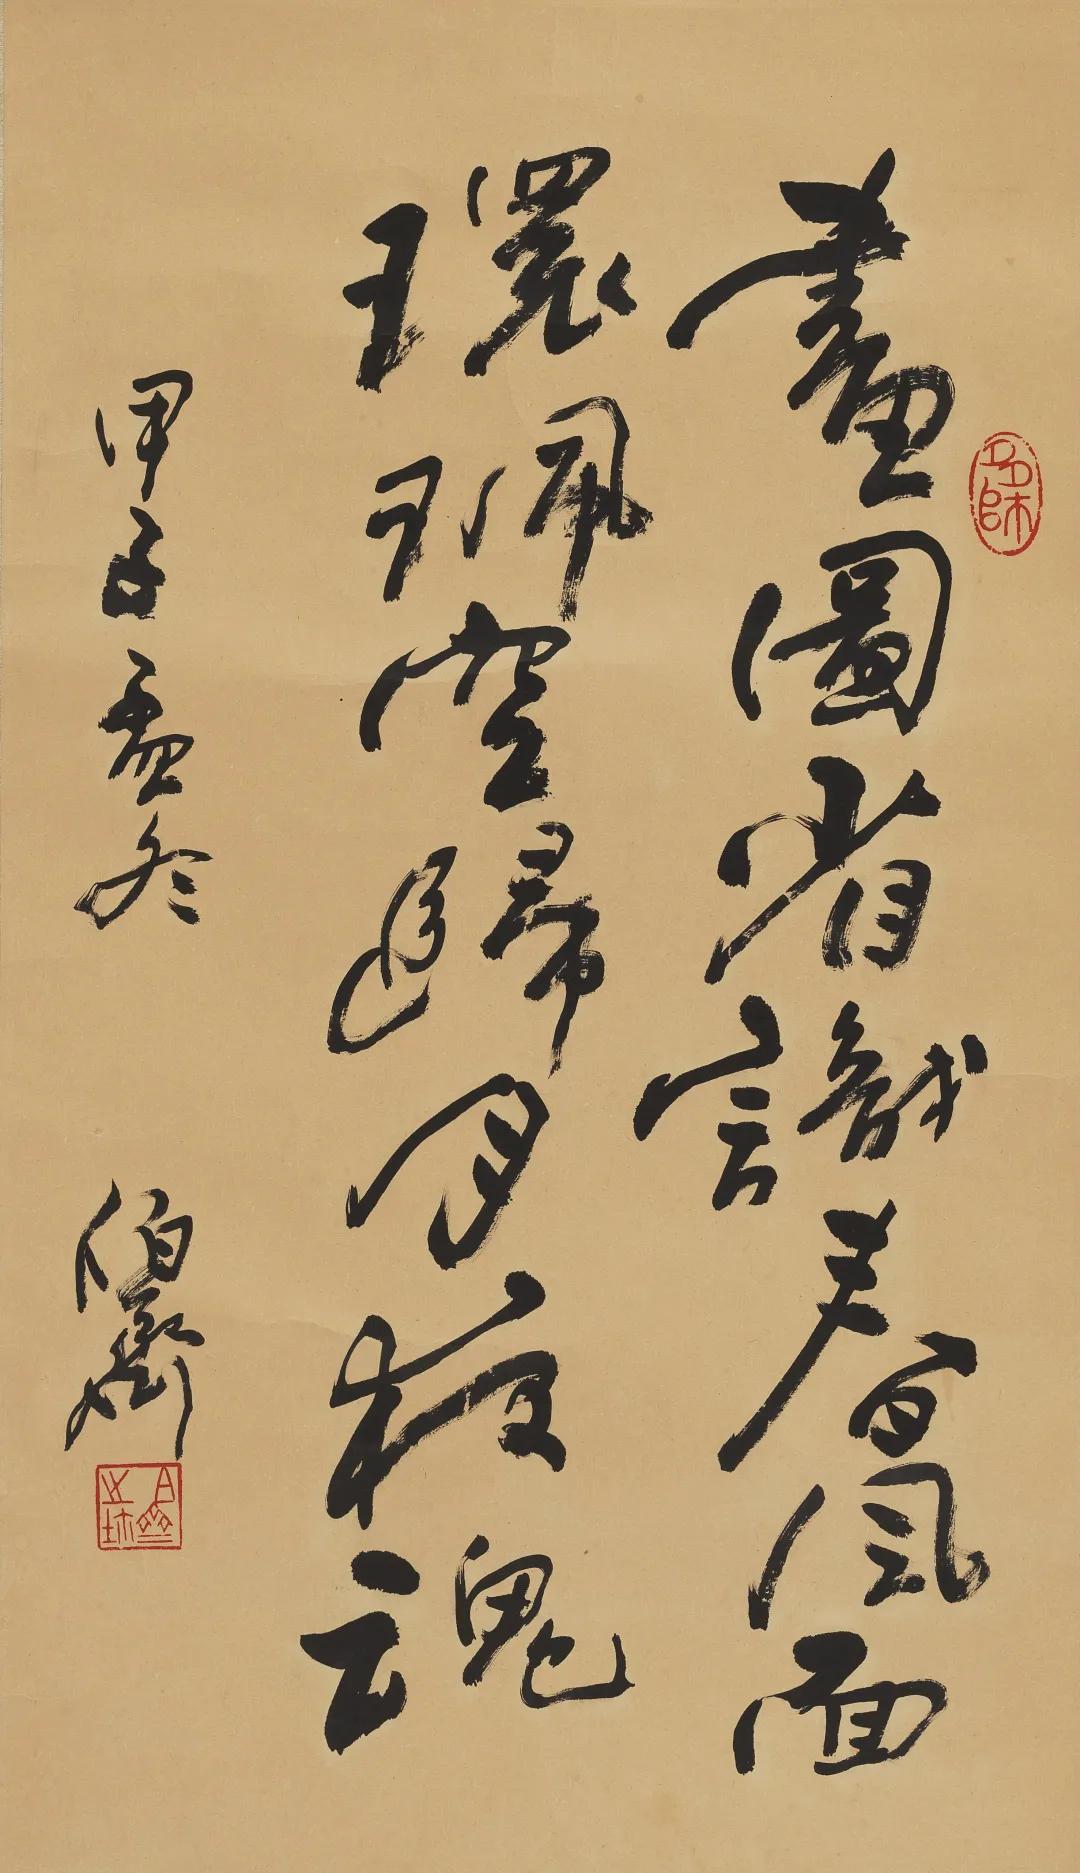 畫圖省識春風面
環珮空歸月夜魂
甲子孟冬
伯齊